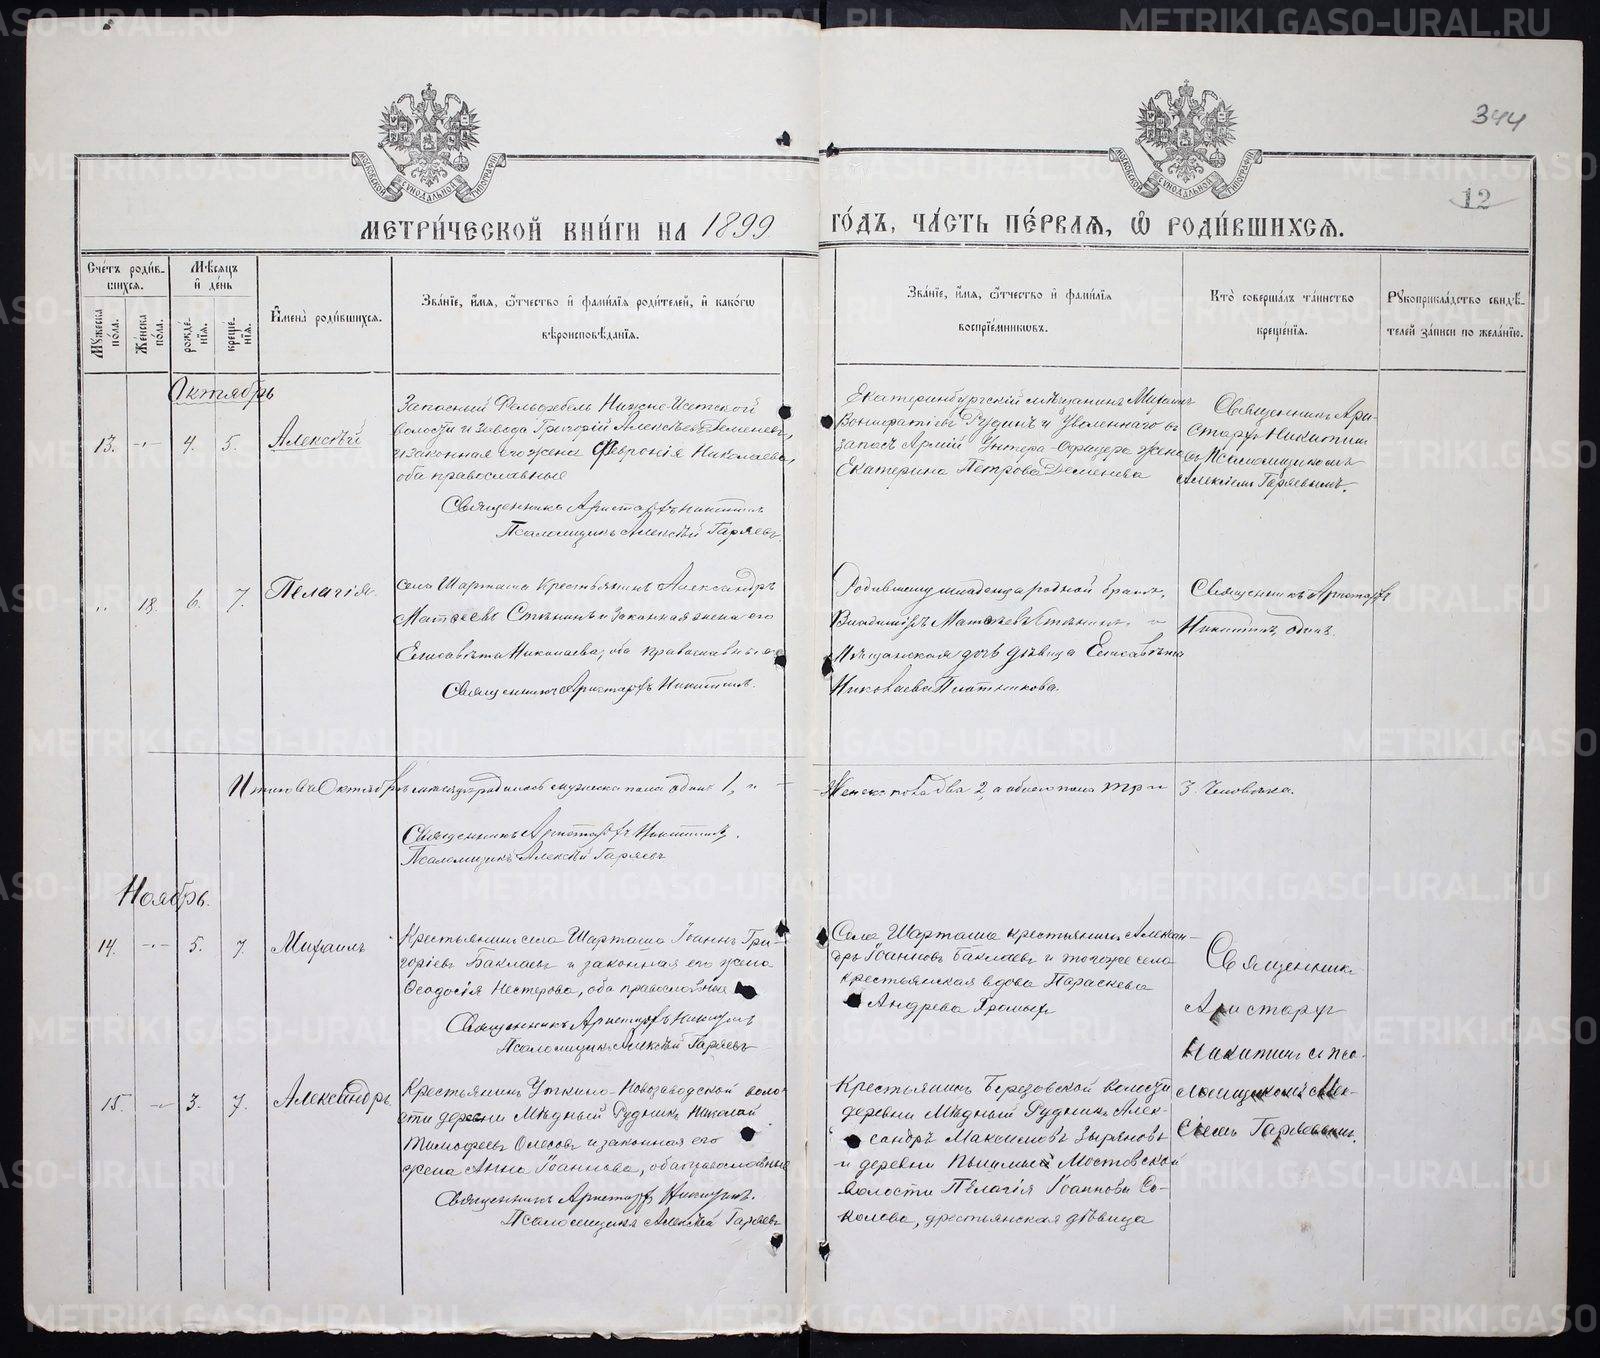 344
12
МЕТРИ́ЧЕСКОЙ КНИ́ГИ НА 1899 ГО́ДЪ, ЧА́СТЬ ПЕ́РВАѦ, Ѿ РОДИ́ВШИХСѦ.
Сче́тъ роди́в-
шихсѧ.
Мѣ́сѧцъ
и де́нь
Мꙋ́жеска
по́ла.
Же́нска
по́ла.
рожде́-
нїѧ.
креще́-
нїѧ.
Имена̀ роди́вшихсѧ.
Зва́нїе, и́мѧ, ѻ҆́тчество и фами́лїѧ роди́телей, и како́гѡ
вѣроисповѣ́данїѧ.
Зва́нїе, и́мѧ, ѻ҆́тчество и фами́лїѧ
воспрїе́мникѡвъ.
Кто̀ соверша́лъ та́инство
креще́нїѧ.
Рꙋкоприкла́дство свидѣ́-
телей за́писи по жела́нїю.
Октябрь
13. -"- 4. 5. Алексѣй
Запасный Фельдфебель Нижне-Исетской
волости и завода Григорій Алексѣевъ Деменевъ,
и законная его жена Февронія Николаева,
оба православные
Священникъ Аристархъ Никитинъ
Псаломщикъ Алексѣй Гаряевъ.
Екатеринбургскій мѣщанинъ Михаилъ
Вонифатіевъ Рудинъ и Уволеннаго въ
запасъ Арміи Унтеръ-Офицера жена
Екатерина Петрова Деменева
Священникъ Ари-
стархъ Никитинъ
съ Псаломщикомъ
Алексѣемъ Гаряевымъ.
" 18. 6. 7. Пелагія.
села Шарташа Крестьянинъ Александръ
Матѳеевъ Стянинъ и Законная жена его
Елисавета Николаева, оба православные
Священникъ Аристархъ Никитинъ.
Родившему младенца родной братъ,
Владиміръ Матѳеевъ и
Мѣщанская дочь дѣвица Елисавета
Николаева Плотникова.
Священникъ Аристархъ
Никитинъ, одинъ.
Итого въ Октябрѣ мѣсяцѣ родилось мужеска пола одинъ 1, и - Женска пола два 2, а обоего пола три 3. Человѣка.
Священникъ Аристархъ Никитинъ.
Псаломщикъ Алексѣй Гаряевъ
Ноябрь.
14. -"- 5. 7. Михаилъ
Крестьянинъ села Шарташа Іоаннъ Гри-
горіевъ Баклаевъ и законная его жена
Ѳеодосія Нестерова, оба православные
Священникъ Аристархъ Никитинъ
Псаломщикъ Алексѣй Гаряевъ
Села Шарташа крестьянинъ Алексан-
дръ Іоанновъ Баклаевъ и тогоже села
крестьянская вдова Параскева
Андреева Громыхъ
Священникъ
Аристархъ
Никитинъ съ пса-
ломщикомъ Алек-
сѣемъ Гаряевымъ.
15. -"- 3. 7. Александръ.
Крестьянинъ Уткино-Новозаводской воло-
сти деревни Мѣдный Рудникъ Николай
Тимоѳеевъ Олесовъ и законная его
жена Анна Іоаннова, оба православные
Священникъ Аристархъ Никитинъ.
Псаломщикъ Алексѣй Гаряевъ
Крестьянинъ Березовской волости
деревни Мѣдный Рудникъ Алек-
сандръ Максимовъ Зыряновъ
и деревни Пышмы Мостовской
волости Пелагія Іоаннова Со-
колова, крестьянская дѣвица